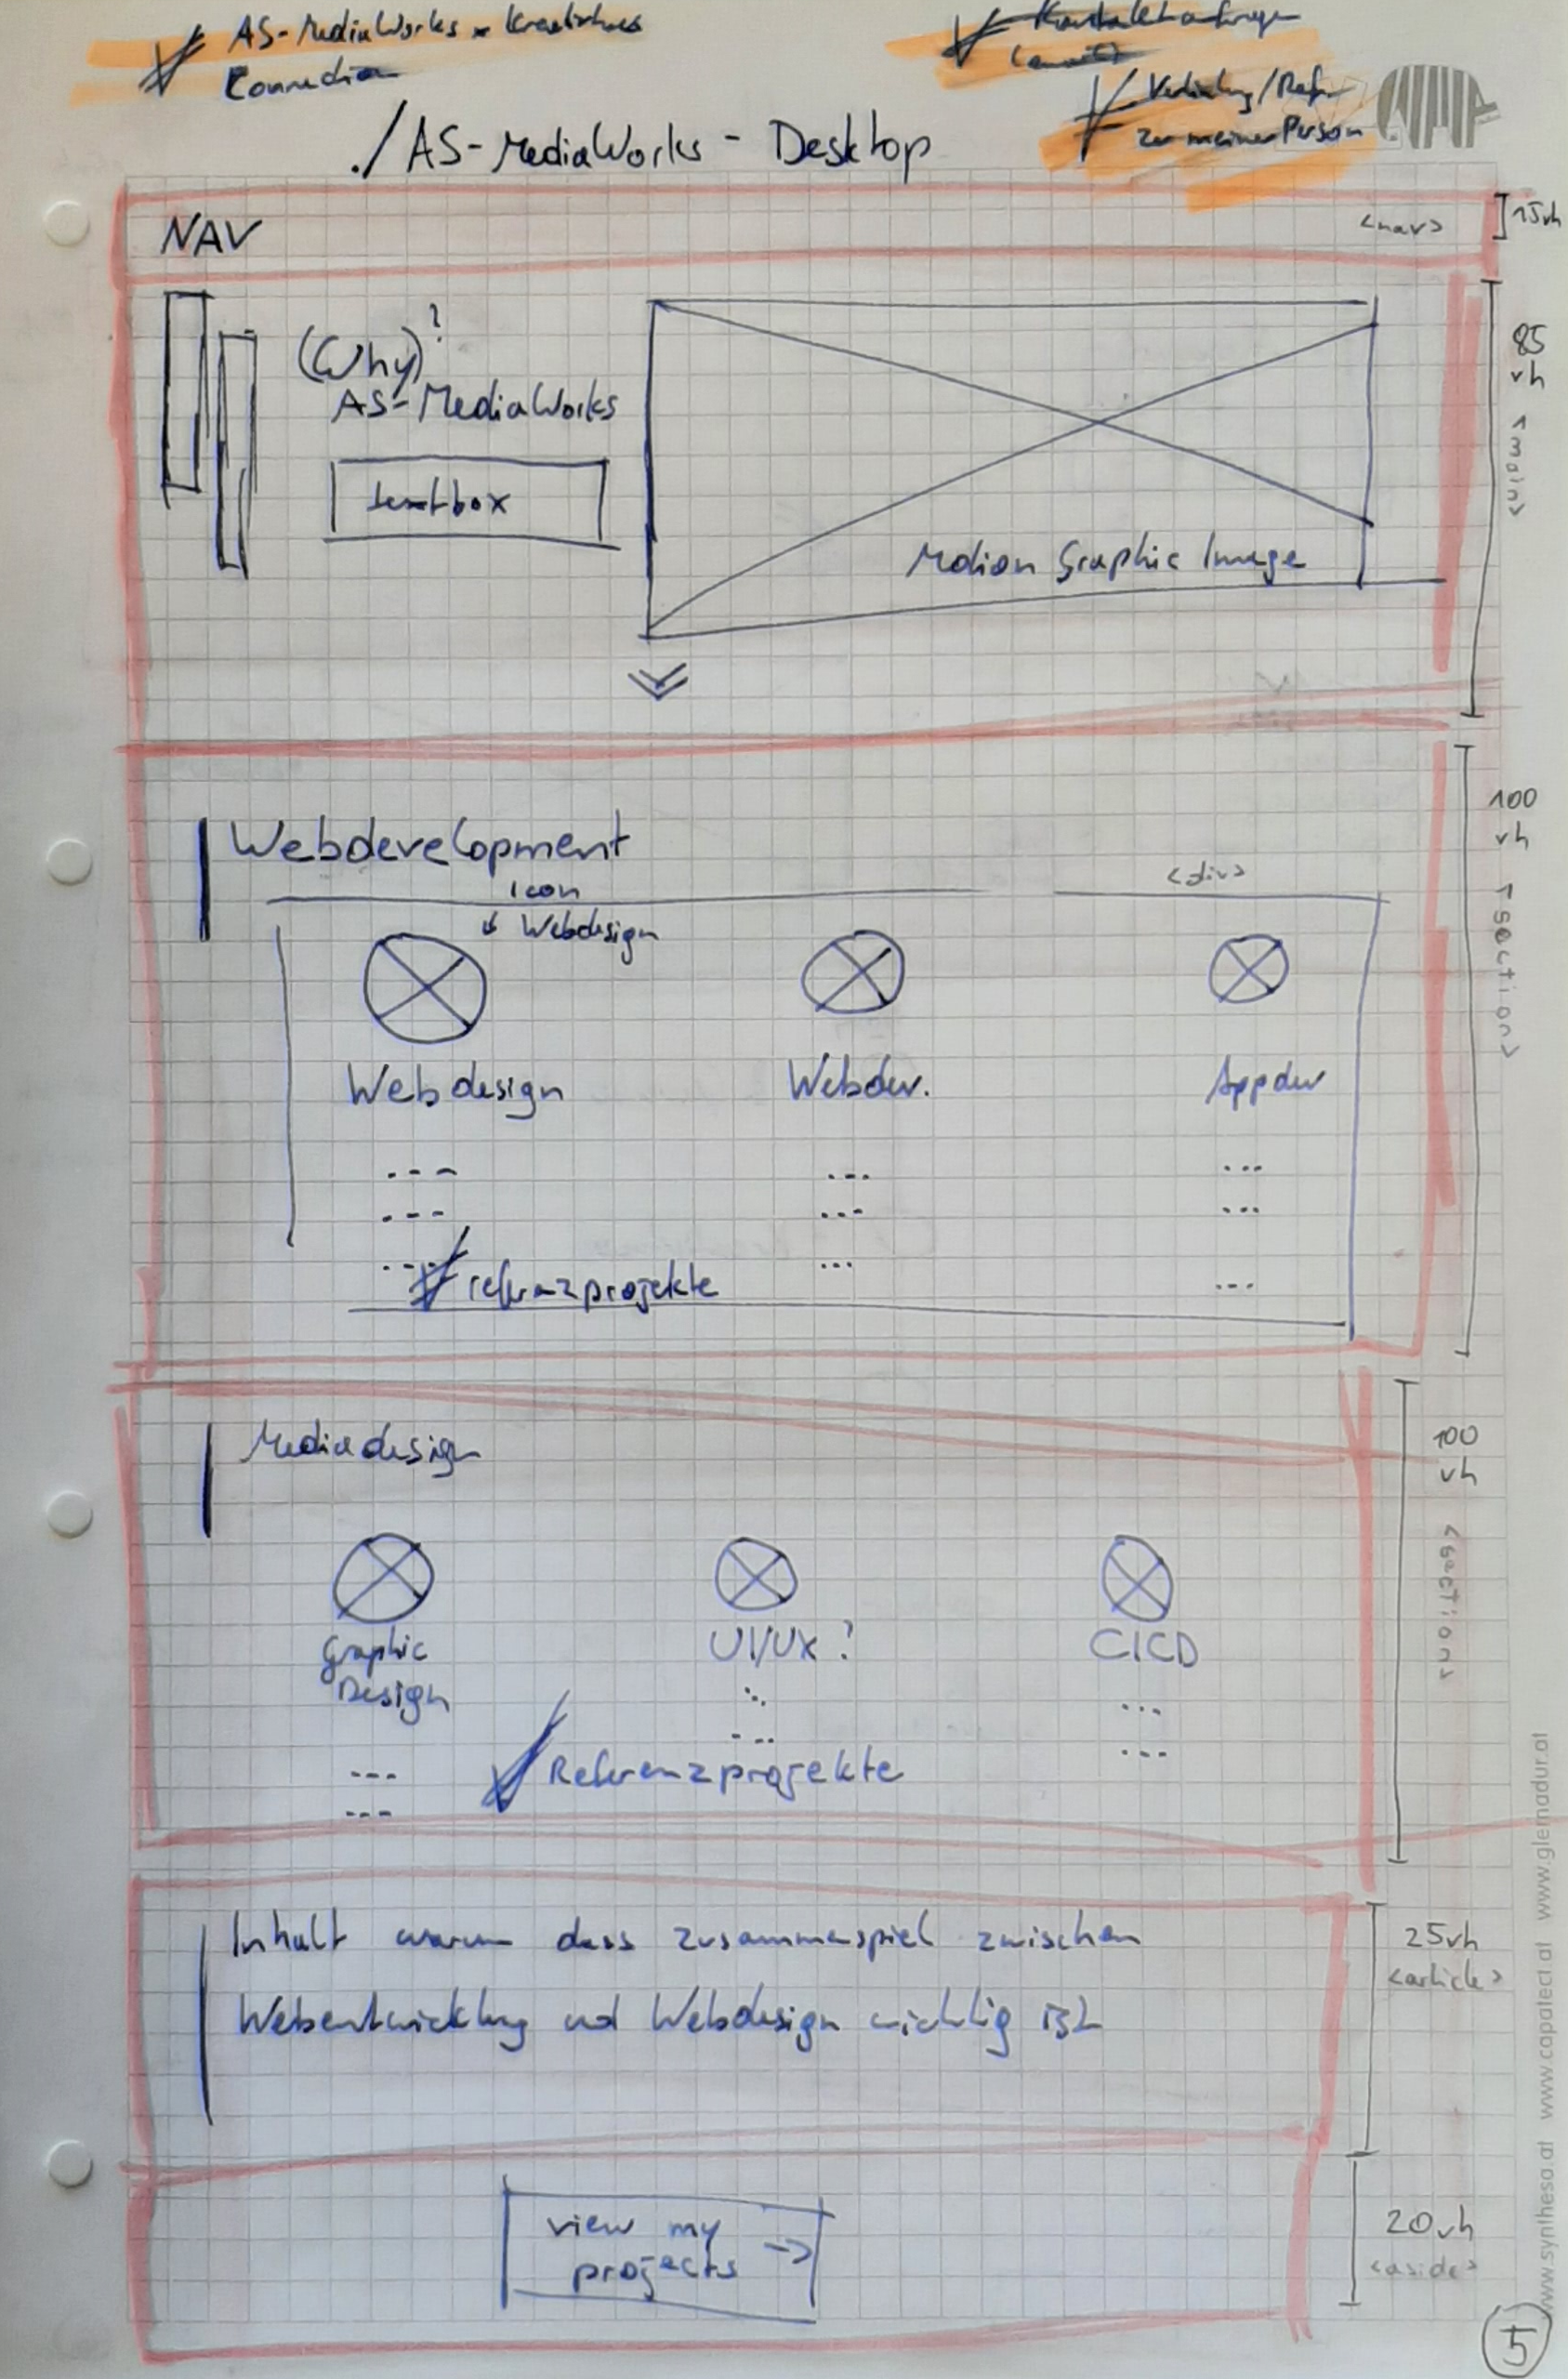 AS-MediaWorks x Kreatives
Connection
Kontaktanfrage
(email)
Verlinkung/Ref.
zu meiner Person
./AS-MediaWorks - Desktop
NAV
<nav>
15vh
(Why)?
AS-MediaWorks
textbox
Motion Graphic Image
85
vh
<main>
Webdevelopment
<div>
Icon
Webdesign
Webdesign
Webdev.
Appdev
...
...
...
...
...
...
...
...
...
referenzprojekte
100
vh
<section>
Mediadesign
Graphic
Design
UI/UX ?
CICD
...
...
...
...
...
...
Referenzprojekte
100
vh
<section>
Inhalt warum dass zusammenspiel zwischen
Webentwicklung und Webdesign wichtig ist
25vh
<article>
view my
projects →
20vh
<aside>
www.synthesa.at www.capatect.at www.glemadur.at
5